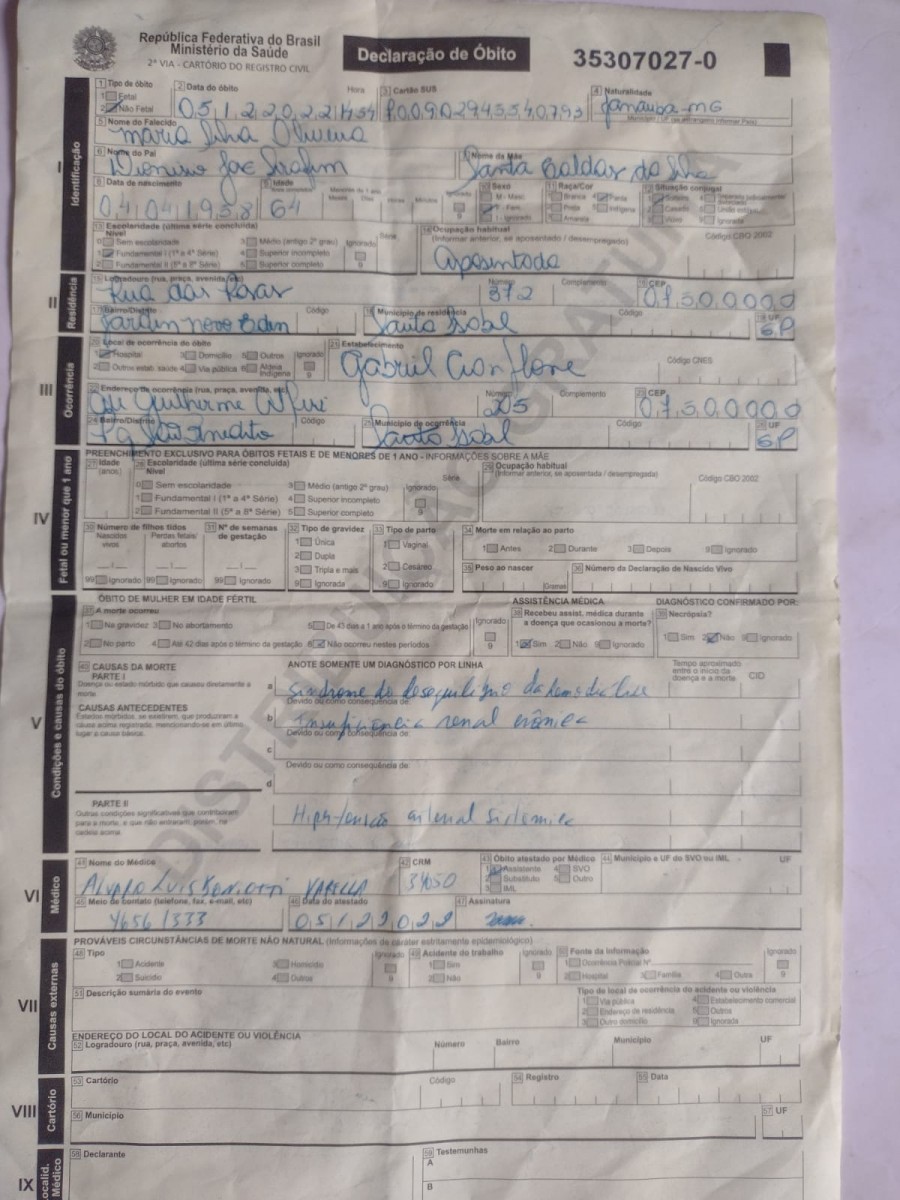 República Federativa do Brasil
Ministério da Saúde
2ª VIA - CARTÓRIO DO REGISTRO CIVIL
Declaração de Óbito
35307027-0
I Identificação
1 Tipo de óbito
1 Fetal
2 Não Fetal
2 Data do óbito Hora
05122022 1454
3 Cartão SUS
4 Naturalidade
Janauba-MG
Município / UF (se estrangeiro informar País)
5 Nome do Falecido
Maria Silva Oliveira
6 Nome do Pai
Dionisio José Serafim
7 Nome da Mãe
Santa Caldas da Silva
8 Data de nascimento
04041958
9 Idade
64
Menores de 1 ano
Ignorado
9
10 Sexo
M - Masc.
F - Fem.
I - Ignorado
11 Raça/Cor
1 Branca 4 Parda
2 Preta 5 Indígena
3 Amarela
12 Situação conjugal
1 Solteiro 4 Separado judicialmente/ divorciado
2 Casado 5 União estável
3 Viúvo 9 Ignorado
13 Escolaridade (última série concluída)
Nível Série
0 Sem escolaridade 3 Médio (antigo 2º grau) Ignorado
1 Fundamental I (1ª a 4ª Série) 4 Superior incompleto
2 Fundamental II (5ª a 8ª Série) 5 Superior completo 9
14 Ocupação habitual
(Informar anterior, se aposentado / desempregado) Código CBO 2002
aposentada
II Residência
15 Logradouro (rua, praça, avenida, etc) Número Complemento 16 CEP
Rua das Rosas 372 07500000
17 Bairro/Distrito Código 18 Município de residência Código 19 UF
Jardim novo Eden Santa Isabel SP
III Ocorrência
20 Local de ocorrência do óbito
1 Hospital 3 Domicílio 5 Outros Ignorado
2 Outros estab. saúde 4 Via pública 6 Aldeia Indígena 9
21 Estabelecimento Código CNES
Gabriel Cianflone
22 Endereço de ocorrência (rua, praça, avenida, etc) Número Complemento 23 CEP
Guilherme Alfieri 205 07500000
24 Bairro/Distrito Código 25 Município de ocorrência Código 26 UF
Pq São Benedito Santa Isabel SP
IV Fetal ou menor que 1 ano
PREENCHIMENTO EXCLUSIVO PARA ÓBITOS FETAIS E DE MENORES DE 1 ANO - INFORMAÇÕES SOBRE A MÃE
27 Idade
(anos)
28 Escolaridade (última série concluída)
Nível Série
0 Sem escolaridade 3 Médio (antigo 2º grau) Ignorado
1 Fundamental I (1ª a 4ª Série) 4 Superior incompleto
2 Fundamental II (5ª a 8ª Série) 5 Superior completo 9
29 Ocupação habitual
(Informar anterior, se aposentada / desempregada) Código CBO 2002
30 Número de filhos tidos
Nascidos vivos Perdas fetais/ abortos
99 Ignorado 99 Ignorado
31 Nº de semanas de gestação
99 Ignorado
32 Tipo de gravidez
1 Única
2 Dupla
3 Tripla e mais
9 Ignorada
33 Tipo de parto
1 Vaginal
2 Cesáreo
9 Ignorado
34 Morte em relação ao parto
1 Antes 2 Durante 3 Depois 9 Ignorado
35 Peso ao nascer
Gramas
36 Número da Declaração de Nascido Vivo
V Condições e causas do óbito
ÓBITO DE MULHER EM IDADE FÉRTIL
37 A morte ocorreu
1 Na gravidez 3 No abortamento 5 De 43 dias a 1 ano após o término da gestação Ignorado
2 No parto 4 Até 42 dias após o término da gestação 8 Não ocorreu nestes períodos 9
ASSISTÊNCIA MÉDICA
38 Recebeu assist. médica durante a doença que ocasionou a morte?
1 Sim 2 Não 9 Ignorado
DIAGNÓSTICO CONFIRMADO POR:
39 Necrópsia?
1 Sim 2 Não 9 Ignorado
40 CAUSAS DA MORTE
PARTE I
Doença ou estado mórbido que causou diretamente a morte
CAUSAS ANTECEDENTES
Estados mórbidos, se existirem, que produziram a causa acima registrada, mencionando-se em último lugar a causa básica.
ANOTE SOMENTE UM DIAGNÓSTICO POR LINHA
Tempo aproximado entre o início da doença e a morte CID
a Síndrome do desequilíbrio da hemodiálise
Devido ou como consequência de:
b Insuficiência renal crônica
Devido ou como consequência de:
c
Devido ou como consequência de:
d
PARTE II
Outras condições significativas que contribuíram para a morte, e que não entraram, porém, na cadeia acima.
Hipertensão arterial sistêmica
VI Médico
41 Nome do Médico
Alvaro Luis Varella
42 CRM
43 Óbito atestado por Médico
1 Assistente 4 SVO
2 Substituto 5 Outro
3 IML
44 Município e UF do SVO ou IML UF
45 Meio de contato (telefone, fax, e-mail, etc)
4656 1333
46 Data do atestado
05122022
47 Assinatura
VII Causas externas
PROVÁVEIS CIRCUNSTÂNCIAS DE MORTE NÃO NATURAL (Informações de caráter estritamente epidemiológico)
48 Tipo
1 Acidente 3 Homicídio Ignorado
2 Suicídio 4 Outros 9
49 Acidente do trabalho
1 Sim Ignorado
2 Não 9
50 Fonte da Informação
1 Ocorrência Policial Nº Ignorado
2 Hospital 3 Família 4 Outra 9
51 Descrição sumária do evento
Tipo de local de ocorrência do acidente ou violência
1 Via pública 4 Estabelecimento comercial
2 Endereço de residência 5 Outros
3 Outro domicílio 9 Ignorada
ENDEREÇO DO LOCAL DO ACIDENTE OU VIOLÊNCIA
52 Logradouro (rua, praça, avenida, etc) Número Bairro Município UF
VIII Cartório
53 Cartório Código 54 Registro 55 Data
56 Município 57 UF
IX Localid. Médico
58 Declarante
59 Testemunhas
A
B
DISTRIBUIÇÃO GRATUITA